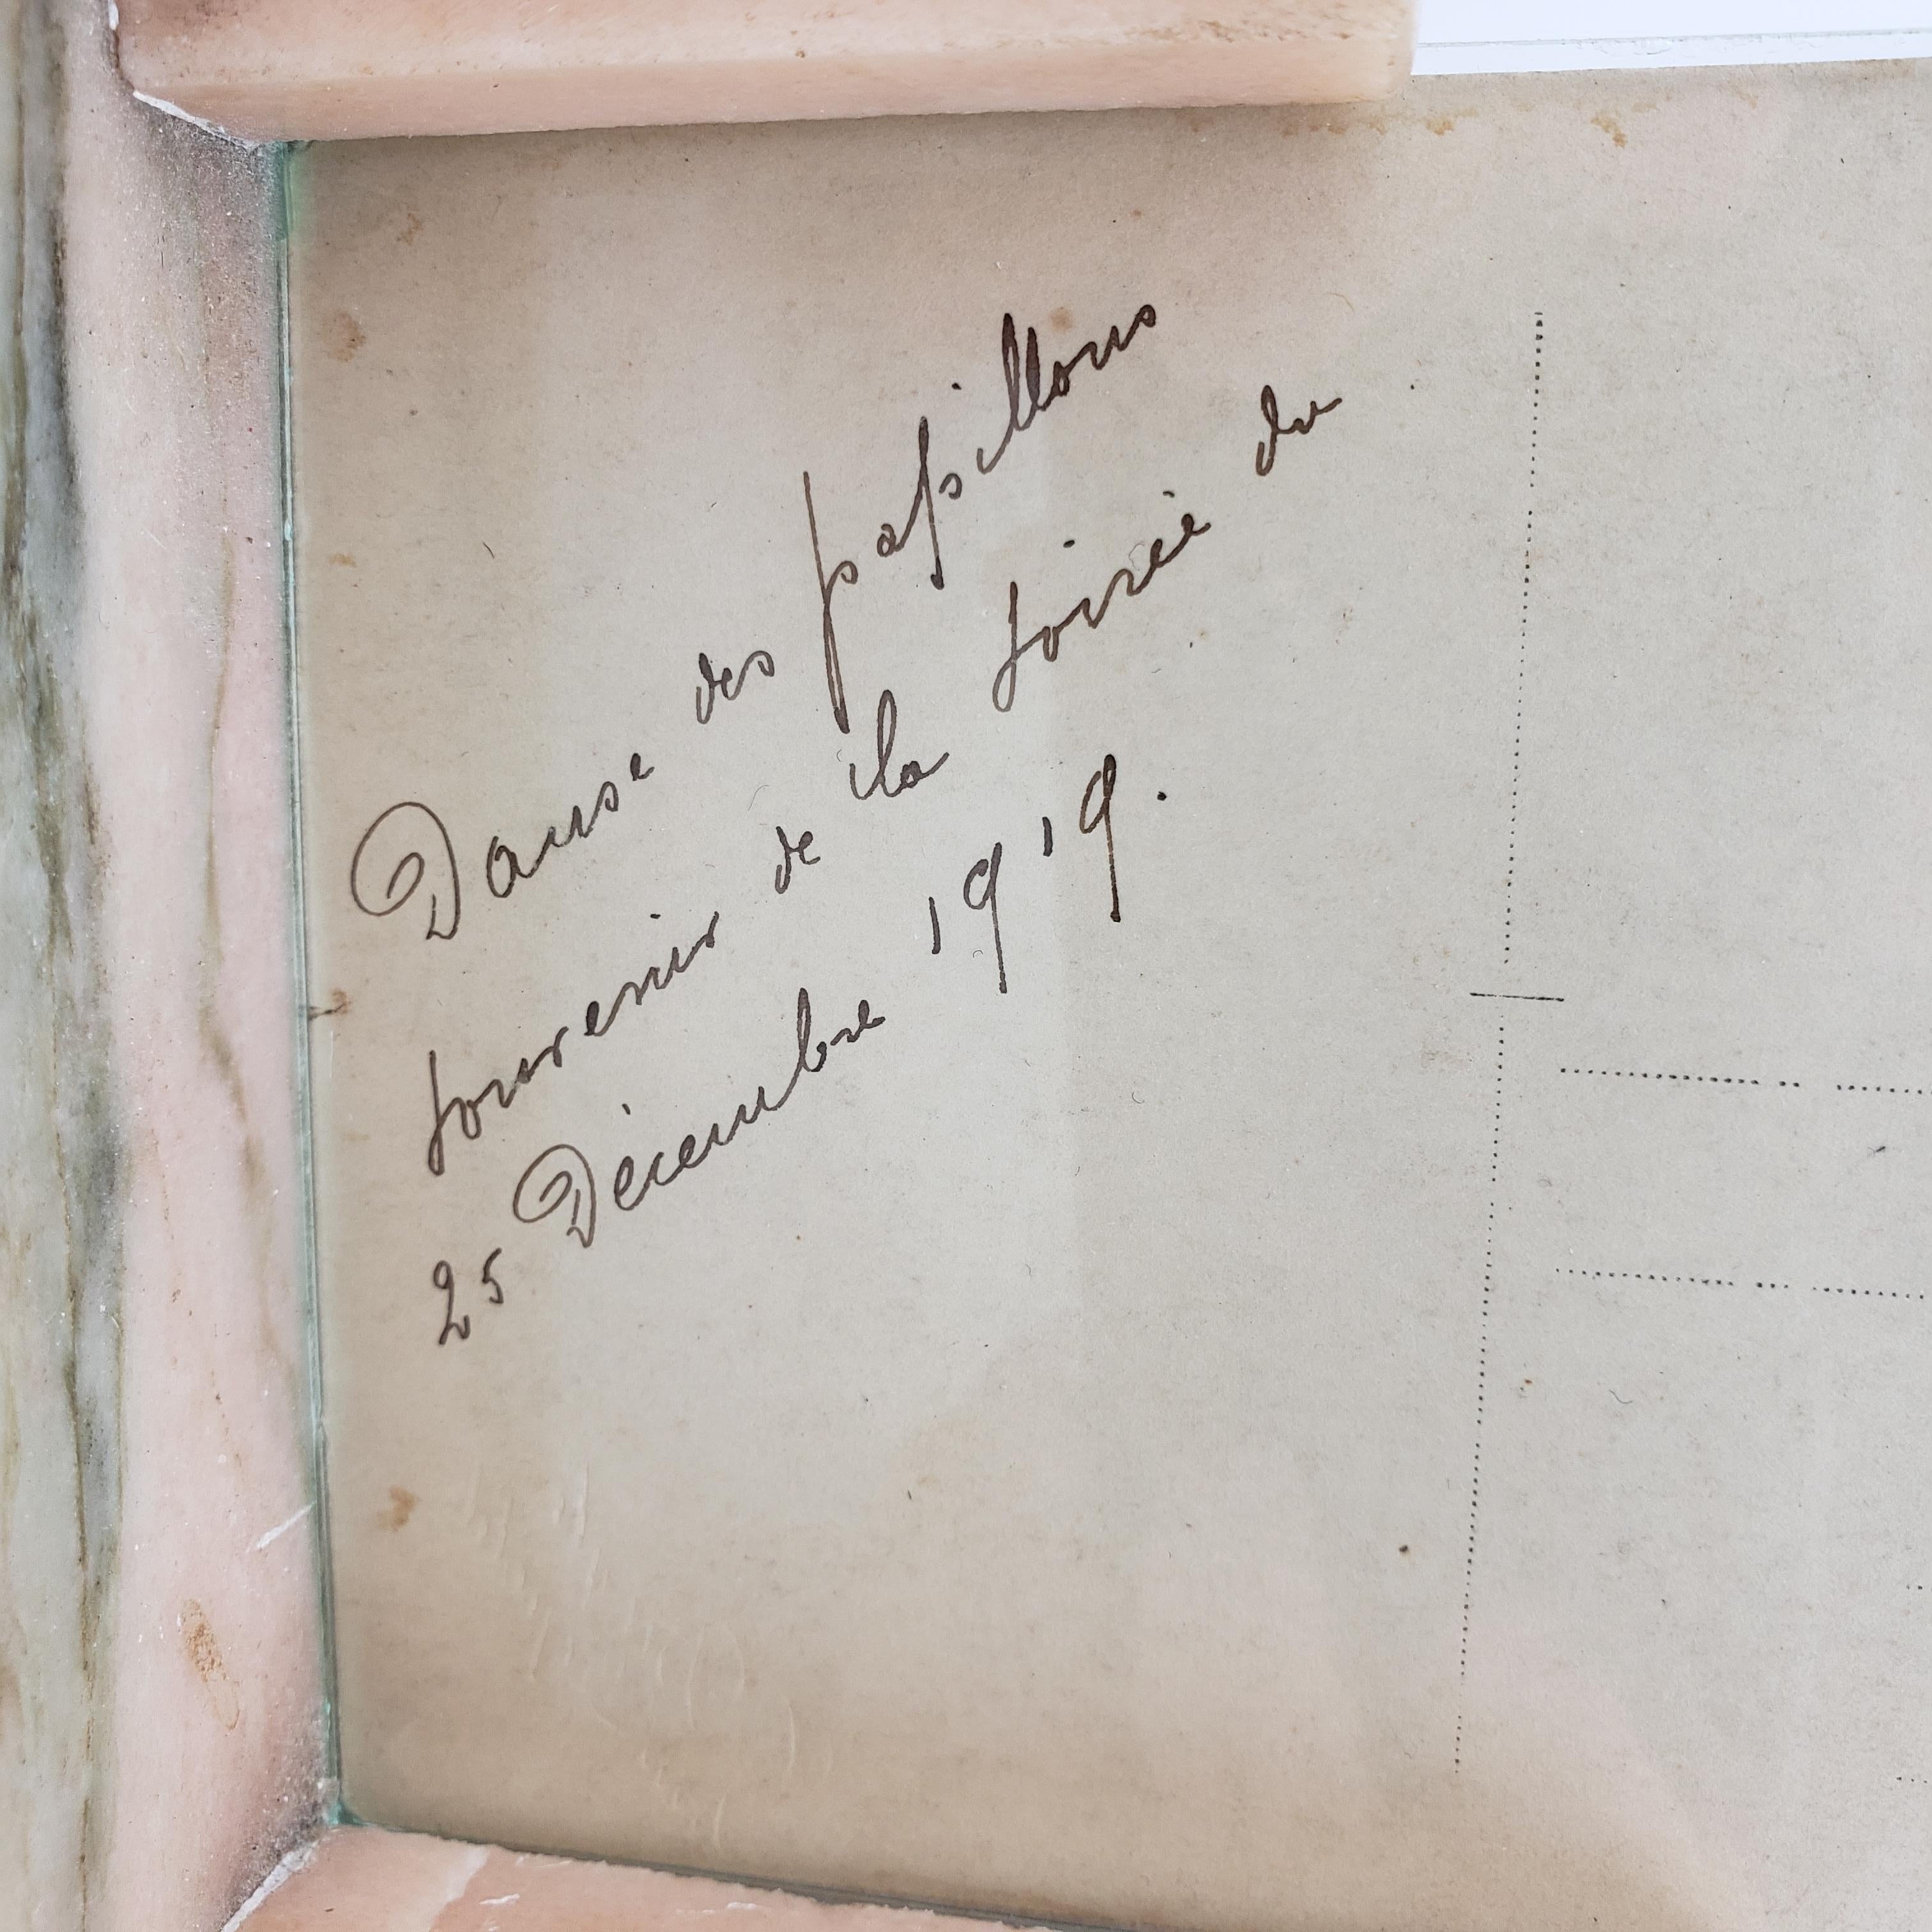 Danse des papillons
souvenir de la soirée du
25 Décembre 1919.